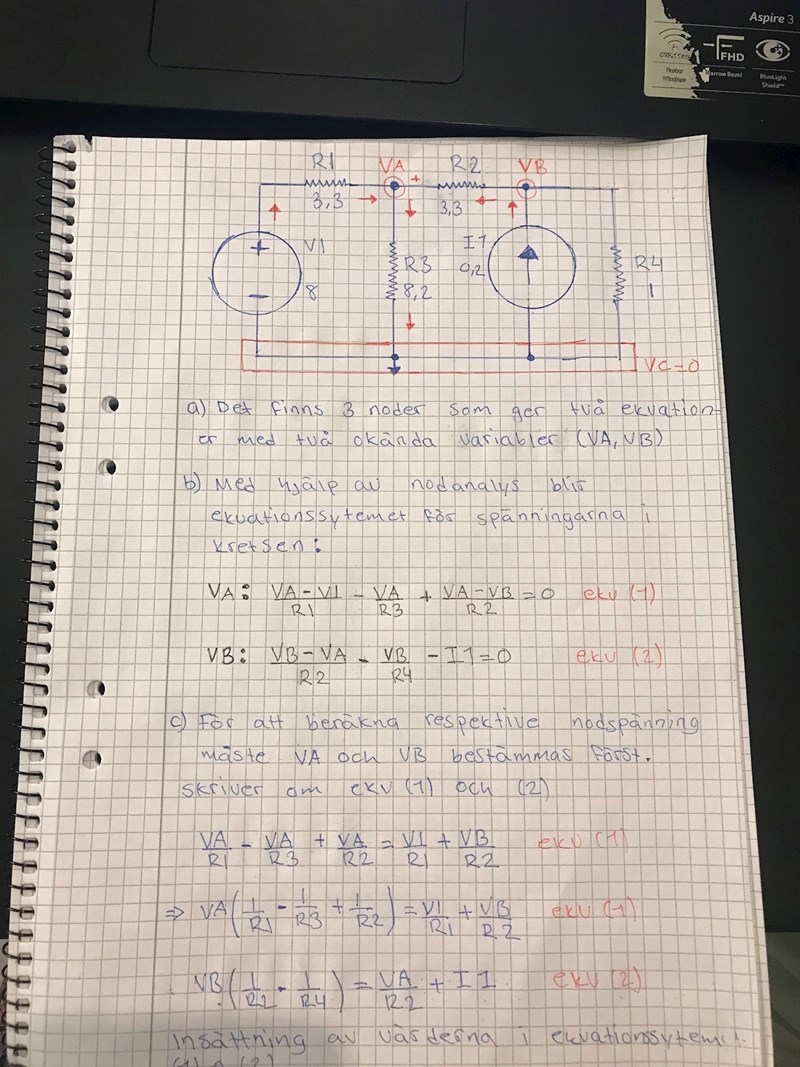 Aspire 3
FHD
Narrow Bezel
BlueLight
Shield™
R1 VA R2 VB
+
3,3 3,3
+ V1 R3 I1 R4
- 8 8,2 0,2 1
VC=0
a) Det finns 3 noder som ger två ekvation-
er med två okända variabler (VA, VB)
b) Med hjälp av nodanalys blir
ekvationssytemet för spänningarna i
kretsen:
VA: (VA-V1)/R1 - VA/R3 + (VA-VB)/R2 = 0 ekv (1)
VB: (VB-VA)/R2 - VB/R4 - I1=0 ekv (2)
c) För att beräkna respektive nodspänning
måste VA och VB bestämmas först.
skriver om ekv (1) och (2)
VA/R1 - VA/R3 + VA/R2 = V1/R1 + VB/R2 ekv (1)
⇒ VA(1/R1 - 1/R3 + 1/R2) = V1/R1 + VB/R2 ekv (1)
VB(1/R2 - 1/R4) = VA/R2 + I1 ekv (2)
insättning av värderna i ekvationssytemet